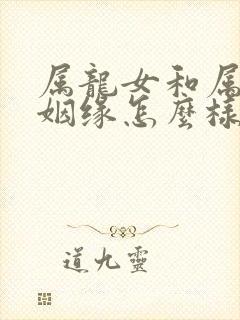 属龍女和属
姻缘怎麼様
道九靈